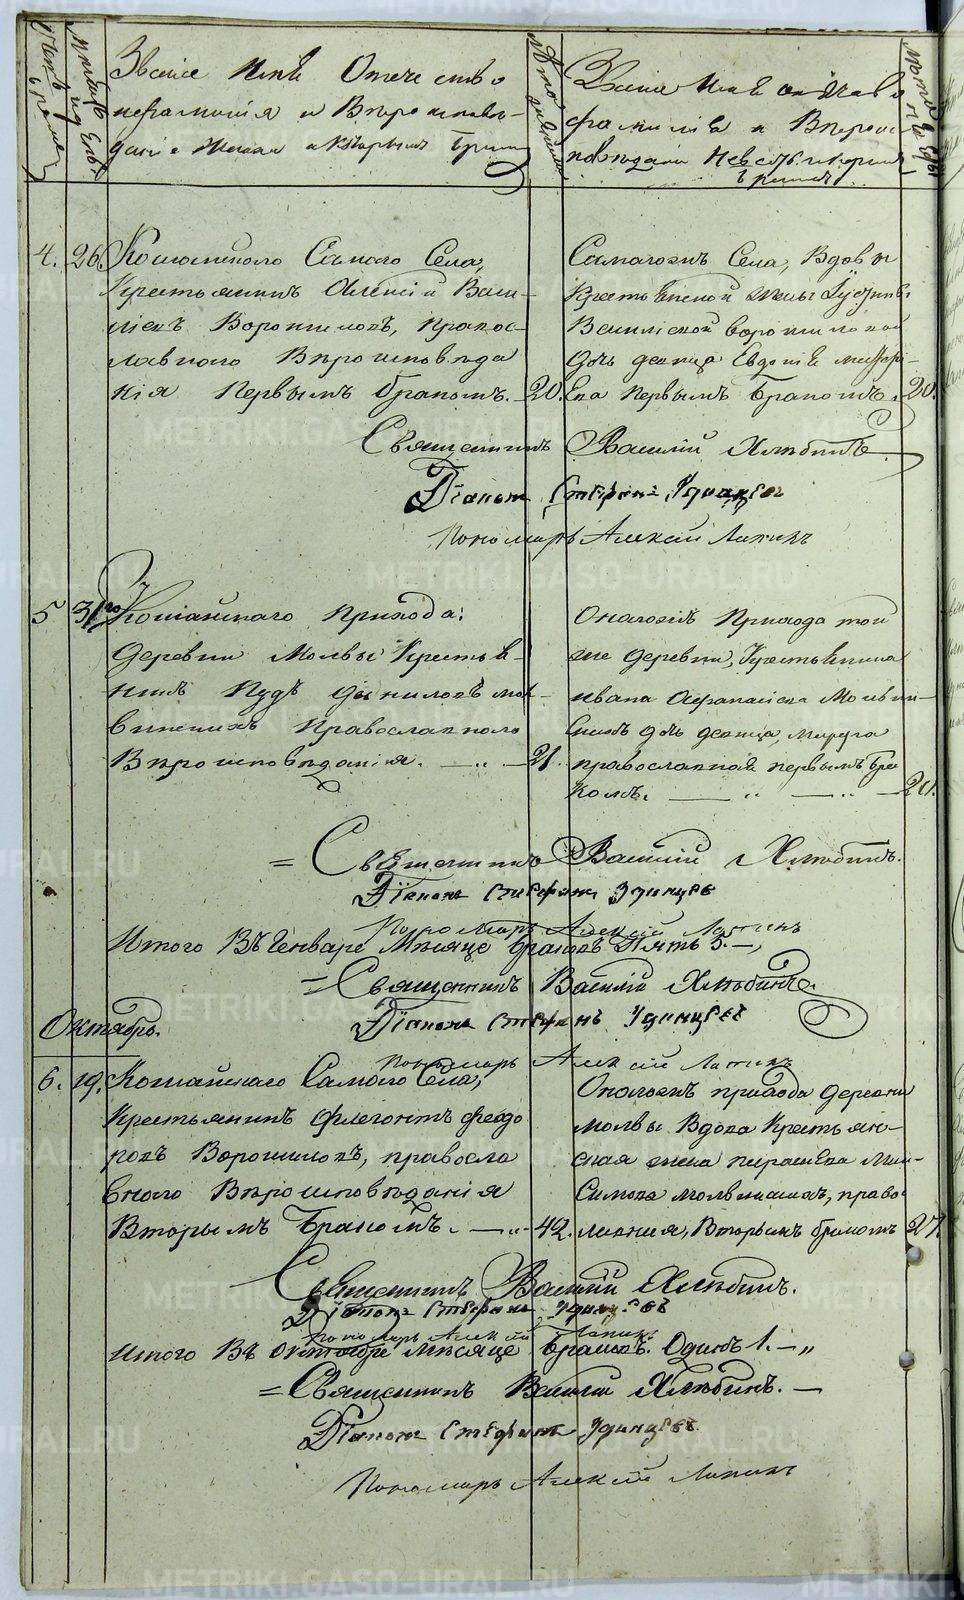 Званіе Имя Отчество
и фамилія и Вѣроисповѣ-
даніе Жениха и Которымъ Бракомъ
Лѣта жениха
Званіе Имя отчество
фамилія и Вѣроис
повѣданіе Невѣсты и которымъ
бракомъ
Лѣта невѣсты
4. 26. Кошайскаго Самаго Села,
Крестьянинъ Алексій Васи-
ліевъ Ворошиловъ, Правос-
лавнаго Вѣроисповѣда
нія Первымъ бракомъ. 20.
Села, Вдовы
Крестьянской жены
Васильевой Ворошиловой
дочь девица Евдокія
Первымъ Бракомъ. 20.
Священникъ Василій Хлюбинъ.
Діаконъ Стефанъ Удинцевъ
Пономарь Алексій Лапинъ
5 31го Кошайскаго Прихода:
Деревни Молвы Крестья-
нинъ Иудъ Даниловъ Мол-
винскихъ Православнаго
Вѣроисповѣданія. — „ — 21.
Онагожъ Прихода той
же деревни, Крестьянина
Ивана Молвин-
скихъ дочь девица,
православная первымъ бра
комъ. — „ — „ — 20.
= Священникъ Василій Хлюбинъ.
Діаконъ Стефанъ Удинцевъ
Пономарь Алексій Лапинъ
Итого Въ Генваре Мѣсяце браковъ Пять 5.—,
= Священникъ Василій Хлюбинъ.
Діаконъ Стефанъ Удинцевъ
Октябрь.
Пономарь Алексій Лапинъ
6. 19. Кошайскаго Самаго Села,
Крестьянинъ Флегонтъ Феодо
ровъ Ворошиловъ, правосла
внаго Вѣроисповѣданія
Вторымъ Бракомъ. — „ 42.
Онагожъ прихода деревни
Молвы Вдова Крестьян-
ская жена Мак-
симова Молвинскихъ, право
славная, Вторымъ бракомъ 27.
Священникъ Василій Хлюбинъ.
Діаконъ Стефанъ Удинцевъ
Пономарь Алексій Лапинъ
Итого Въ октябре мѣсяце браковъ. Одинъ 1. — „
= Священникъ Василій Хлюбинъ. —
Діаконъ Стефанъ Удинцевъ.
Пономарь Алексій Лапинъ
METRIKI.GASO-URAL.RU